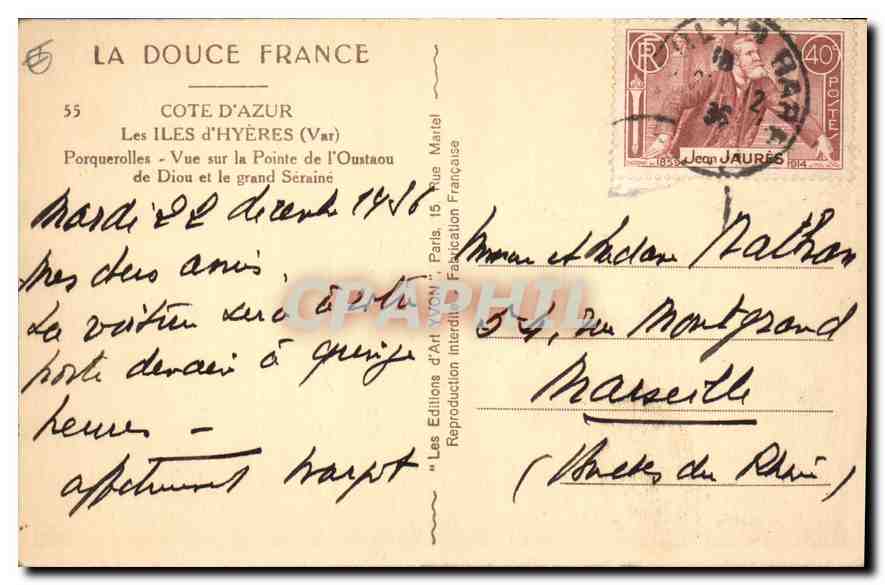 LA DOUCE FRANCE
55
COTE D'AZUR
Les ILES d'HYÈRES (Var)
Porquerolles - Vue sur la Pointe de l'Oustaou
de Diou et le grand Sérainé
Mardi 22 décembre 1936
Mes chers amis,
La voiture sera à votre
porte demain à quinze
heures -
affectueusement
"Les Editions d'Art YVON", Paris, 15 Rue Martel
Reproduction Interdite Fabrication Française
RF
40c
POSTES
Jean JAURÈS
1859
1914
VAR
36
Monsieur et Madame Nathan
54, rue Montgrand
Marseille
(Bouches du Rhône)
CPAPHIL